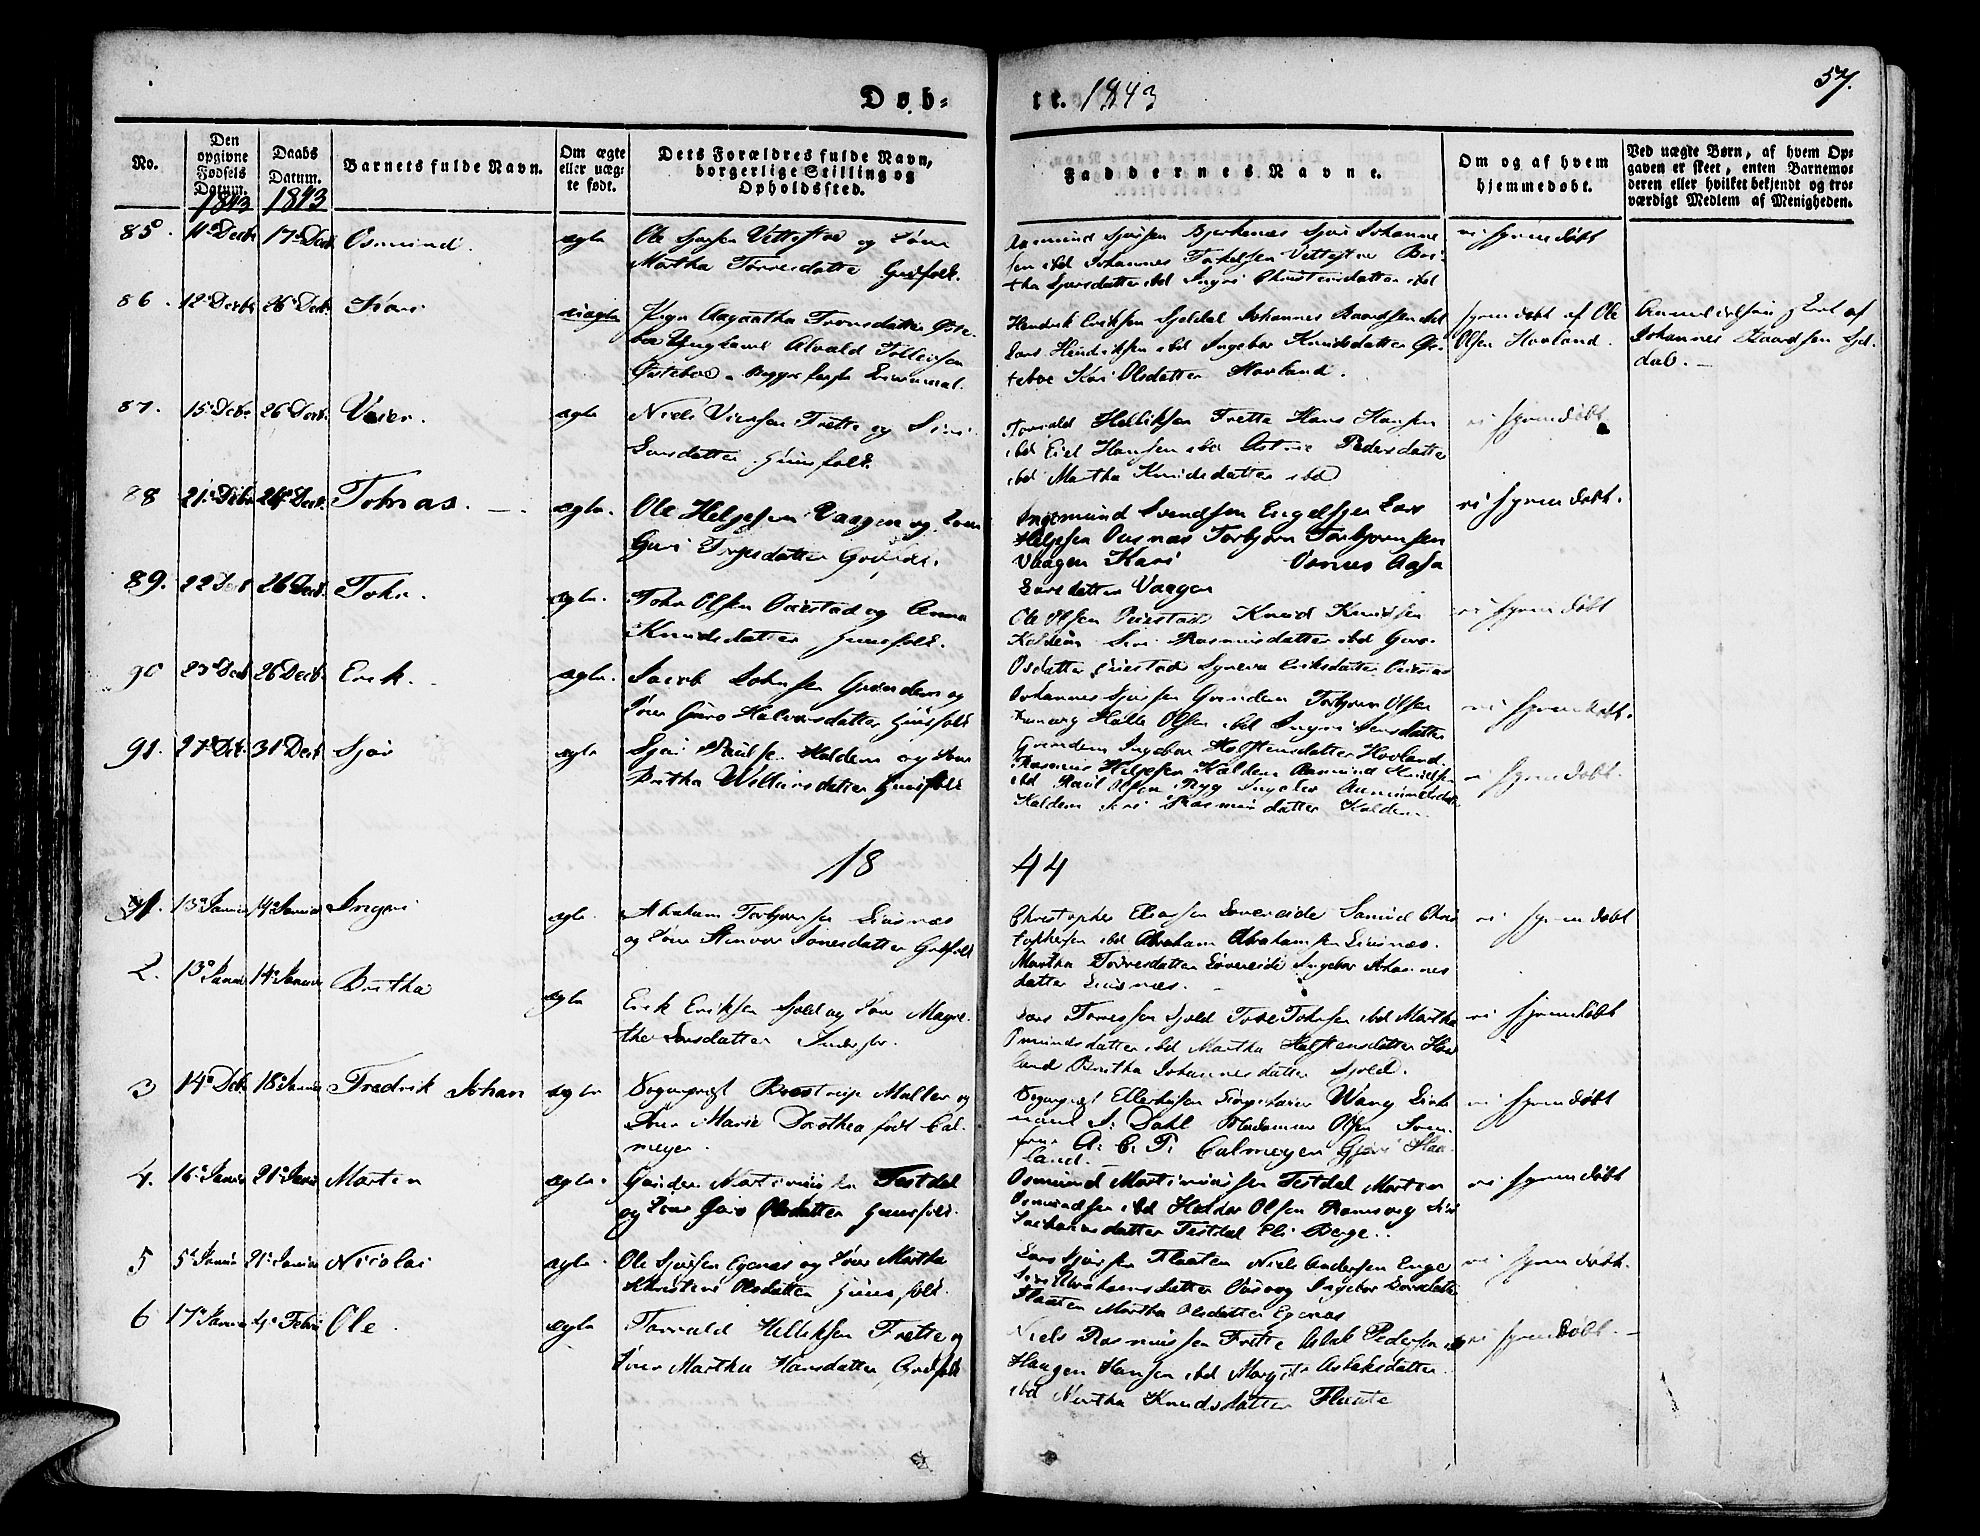 Døb-
te. 1843
57.
No.
Den opgivne Fødsels Datum. 1843
Daabs Datum. 1843
Barnets fulde Navn.
Om ægte eller uægte født.
Dets Forældres fulde Navn, borgerlige Stilling og Opholdssted.
Faddernes Navne.
Om og af hvem hjemmedøbt.
Ved uægte Børn, af hvem Opgaven er skeet, enten Barnemoderen eller hvilket bekjendt og troværdigt Medlem af Menigheden.
85. 11 Decbr 17 Decbr Osmund. ægte Ole Sjursen og Kone
Martha Torresdatter Grdfolk.
Aasmund Sjursen Bjerkenæs Sjur Johanne
sen ibd Johannes Torkelsen
Sjursdatter ibd Ingri Christensdatter ibd
ei hjemdøbt
86. 12 Decbr 26 Decbr Kari uægte Pigen Aagaatha Tronsdatter Øste
boe Ungkarl Alvald Tollevsen
Østeboe Begges første Leiermaal.
Hendrik Eriksen Sjoldal Johannes Baardsen ibd
Lars Hendriksen ibd Ingebor Knudsdatter Øs
teboe Kari Olsdatter Hovland.
hjemdøbt af Ole
Olsen Hovland.
af
Johannes Baardsen Sjol
dal.
87. 15 Decbr 26 Decbr Veier. ægte Niels Viersen Frette og Siri
Larsdatter Huusfolk.
Torvald Helliksen Frette Hans Hansen
ibd Eiel Hansen ibd Astrie Pedersdatter
ibd Martha Knudsdatter ibd
ei hjemdøbt
88 21 Decbr 26 Decbr Tobias. ægte. Ole Helgesen Vaagen og Kone
Guri
Ingemund Svendsen Engelsgjer Lars
Helgesen Osnæs Torbjørn Torbjørnsen
Vaagen Kari Osnæs Aasa
Larsdatter Vaagen
ei hjemdøbt.
89. 22 Decb 26 Decbr John. ægte. John Olsen Ouestad og Anna
Knudsdatter Huusfolk.
Ole Olsen Ouestad Knud Knudsen
Kaldem Siri Rasmusdatter ibd Guro
Osdatter Ouestad Syneva Eriksdatter
ei hjemdøbt
90 23 Decb 26 Decbr Erik. ægte. Jacob Johnsen Grinden og
Kone Guro Halvorsdatter Huusfolk
Johannes Sjursen Grinden Torbjørn Olsen
Ramsvig Halle Olsen ibd Ingri
Grinden Ingebor Holstensdatter Hovland.
ei hjemdøbt.
91. 27 Decb. 31 Decb Sjur ægte Sjur Paulsen Kaldem og Kone
Brita Willumsdatter Huusfolk
Rasmus Helgesen Kaldem Aasmund Knudsen
ibd Paul Olsen Ryg Ingebor Aanmundsdatt
Kaldem Siri Rasmusdatter Kaldem.
ei hjemdøbt.
18 44
1. 13 Januar 14 Januar Ingri ægte. Abraham Torbjørnsen Liusnæs
og Kone Steinvor Jonesdatter Grdfolk
Christopher Eliasen Lovereide Samuel Chris
tophersen ibd Abraham Abrahamsen Liusnæs.
Martha Torresdatter Lovereide Ingebor Johannes
datter Liusnæs.
ei hjemdøbt
2. 13 Januar 14 Januar Britha ægte Erik Eriksen Sjold og Kone Magre
the Larsdatter Inderster.
Lars Torressen Sjold Tore Johnsen ibd Martha
Omundsdatter ibd Martha Holstensdatter Hov
land Britha Johannesdatter Sjold.
ei hjemdøbt
3 14 Decb. 18 Januar Fredrik Johan ægte Sogneprest Møller og
Kone Marie Dorothea født Cal-
meyer.
Sogneprest Ellertsen Wang
S. Dahl Madamme Olsen
A. C. T. Calmeyer
land.
ei hjemdøbt
4. 16 Januar 21 Januar Morten ægte. Gunder Mortinussen Testdal
og Kone Guro Olsdatter Huusfolk.
Osmund Mortinussen Testdal Morten
Osmundsen ibd Heldor Olsen Ramsvig Siri
Zachariasdatter Testdal Eli Berge.
ei hjemdøbt
5 5 Januar 21 Januar Nicolai ægte. Ole Sjursen Egenæs og Kone Martha
Christine Olsdatter Huusfolk.
Lars Sjursen Flaaten Niels Andersen Enge
Siri Abrahamsdatter Ousvog Ingebor Larsdatter
Flaaten Martha Olsdatter Egenæs
ei hjemdøbt.
6 17 Januar 4 Febru Ole. ægte Torvald Helliksen Frette og
Kone Martha Hansdatter Grdfolk
Niels Rasmussen Frette Aslak Pedersen ibd
Haagen Hansen ibd Margit Aslaksdatter
ibd Martha Knudsdatter Flaate
ei hjemdøbt.